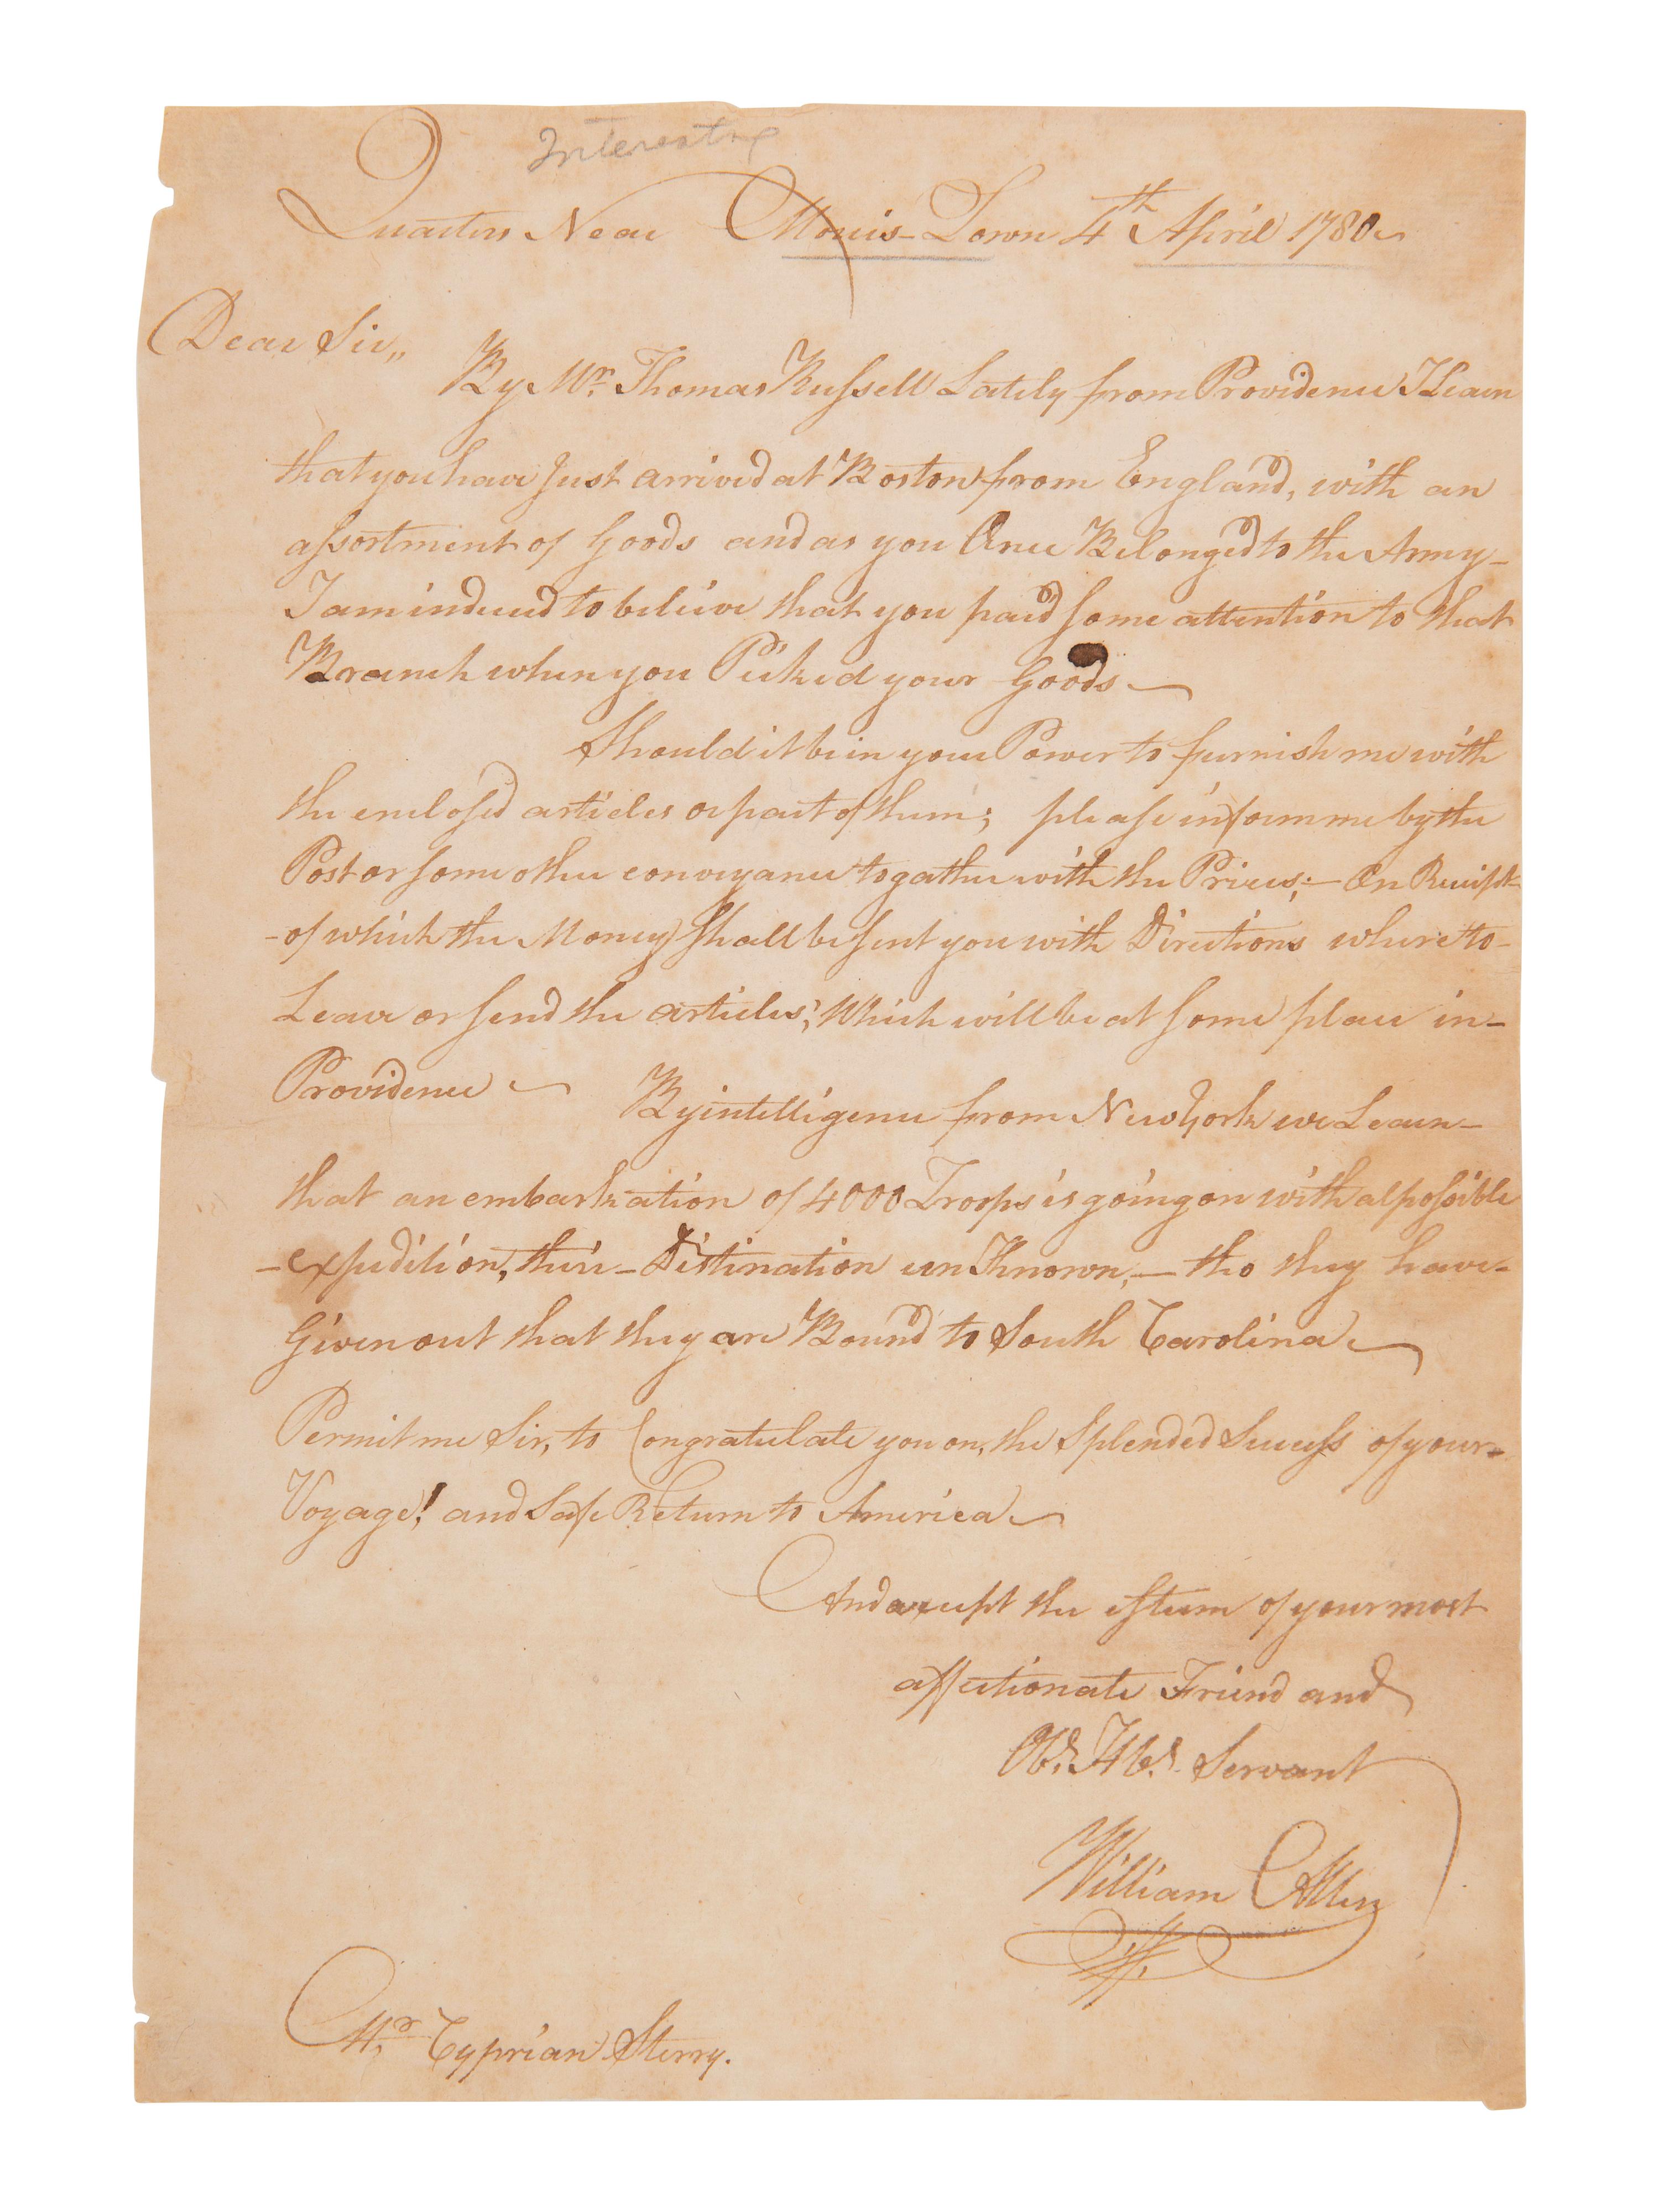 Interesting
Quarters Near Morris-Town 4th April 1780
Dear Sir,,
By Mr. Thomas Russell Lately from Providence I Learn
that you have Just arrived at Boston from England, with an
assortment of Goods and as you Once Belonged to the Army-
I am induced to beleive that you paid some attention to that
Branch when you Picked your Goods —
Should it be in your Power to furnish me with
the enclosed articles or part of them; please inform me by the
Post or some other conveyance togather with the Prices;- On Receipt
-of which the Money shall be sent you with Directions where to-
Leave or send the articles; Which will be at some place in-
Providence —
By intelligence from New York we Learn-
that an embarkation of 4000 Troops is going on with al possible
-expedition, their-Distination unKnown,— tho they have-
Given out that they are Bound to South Carolina —
Permit me Sir, to Congratulate you on, the Splended Success of your-
Voyage! and Safe Return to America —
And accept the esteem of your most
affectionate Friend and
Obt. Hbl. Servant
William Allen
Mr. Cyprian Sterry.